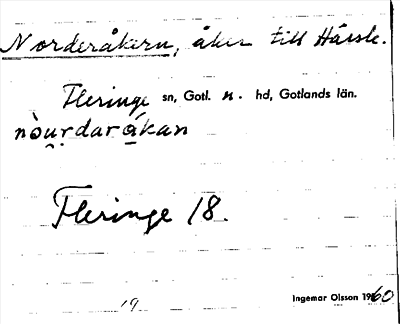 Norderåkern, åker till Hässle.
Fleringe sn, Gotl. n. hd, Gotlands län.
nòu̯rdarå̀kan
Fleringe 18.
19 Ingemar Olsson 1960